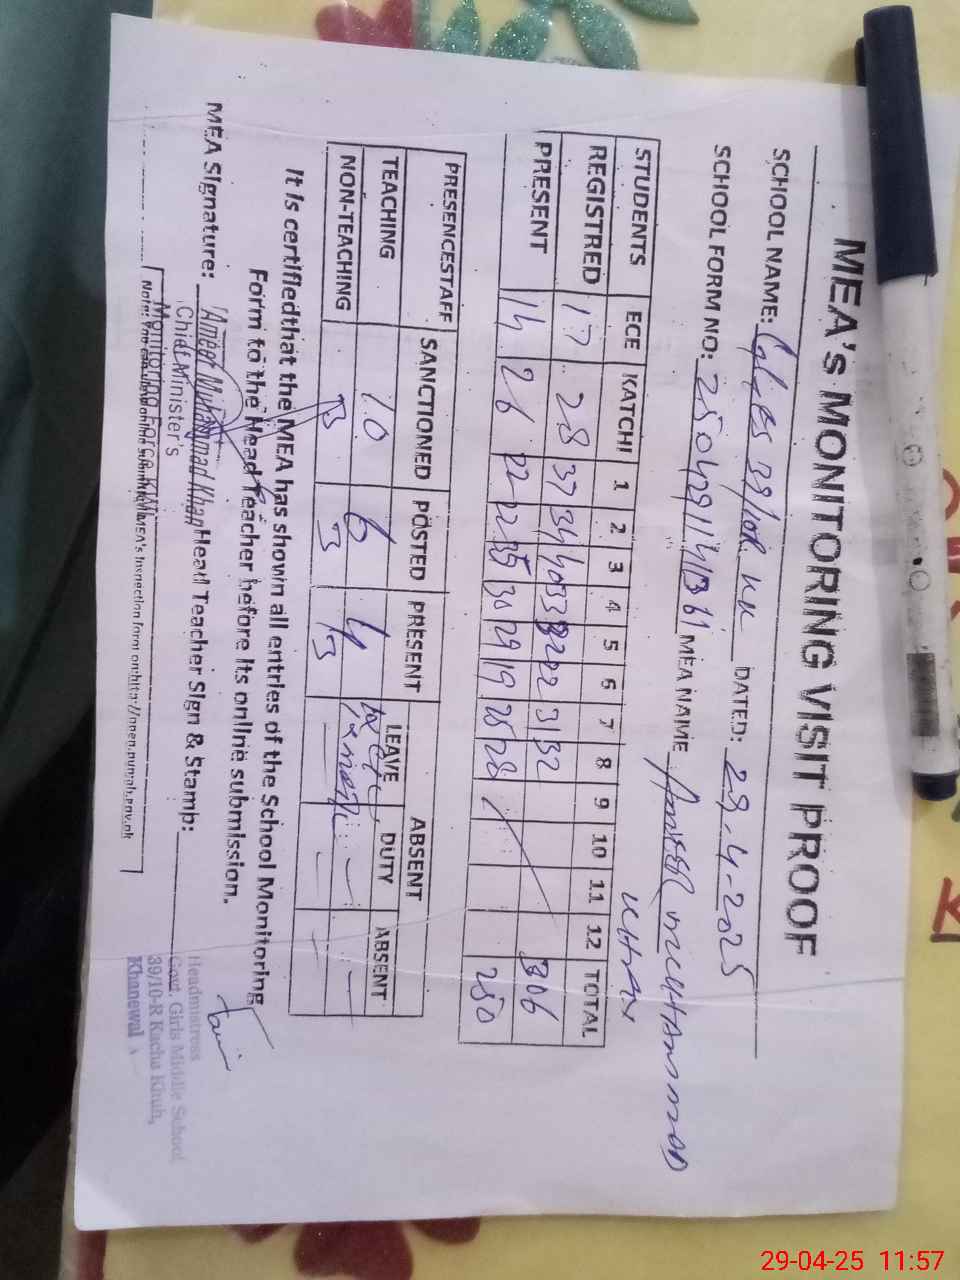 MEA'S MONITORING VISIT PROOF
SCHOOL NAME: 39/10R KK DATED: 29.4-2025
SCHOOL FORM NO: MEA NAME Ameer MUHAMMAD
KHAN
STUDENTS ECE KATCHI 1 2 3 4 5 6 7 8 9 10 11 12 TOTAL
REGISTRED 17 28 37 34 40 33 22 31 32 306
PRESENT 14 26 22 22 35 30 29 19 28 28 250
PRESENCESTAFF SANCTIONED POSTED PRESENT ABSENT
LEAVE DUTY ABSENT
TEACHING 10 6 4
NON-TEACHING
It is certifiedthat the MEA has shown all entries of the School Monitoring
Form to the Head Teacher before its online submission.
MEA Signature: Ameer Muhammad Khan Head Teacher Sign & Stamb:
Chief Minister's
Monitoring Force
Headmistress
Govt. Girls Middle School
39/10-R Kacha Khuh,
Khanewal
29-04-25 11:57